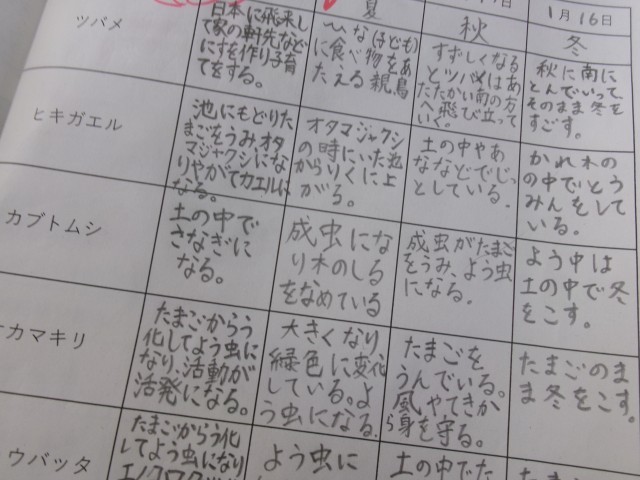 夏
秋
1月16日
冬
ツバメ
日本に飛来し
て家の軒先など
にすを作り子育
てをする。
ひな(子ども)
に食べ物をあ
たえる親鳥
すずしくなる
とツバメはあ
たたかい南の方
へ飛び立って
いく。
秋に南に
とんでいって、
そのまま冬を
すごす。
ヒキガエル
池にもどりた
まごをうみオタ
マジャクシにな
りやがてカエルに
なる。
オタマジャクシ
の時にいた池
からりくに上
がる。
土の中やあ
ななどでじっ
としている。
かれ木の
の中でとう
みんをして
いる。
カブトムシ
土の中で
さなぎに
なる。
成虫にな
り木のしる
をなめている
成虫がたまご
をうみ、よう虫
になる。
よう中は
土の中で冬
をこす。
カマキリ
たまごからう
化してよう虫に
なり、活動が
活発になる。
大きくなり
緑色に変化
している。よ
う虫になる。
たまごを
うんでいる。
風やてきか
ら身を守る。
たまごのま
ま冬をこす。
ウバッタ
たまごからう化
してよう虫になり
よう虫に
土の中でた